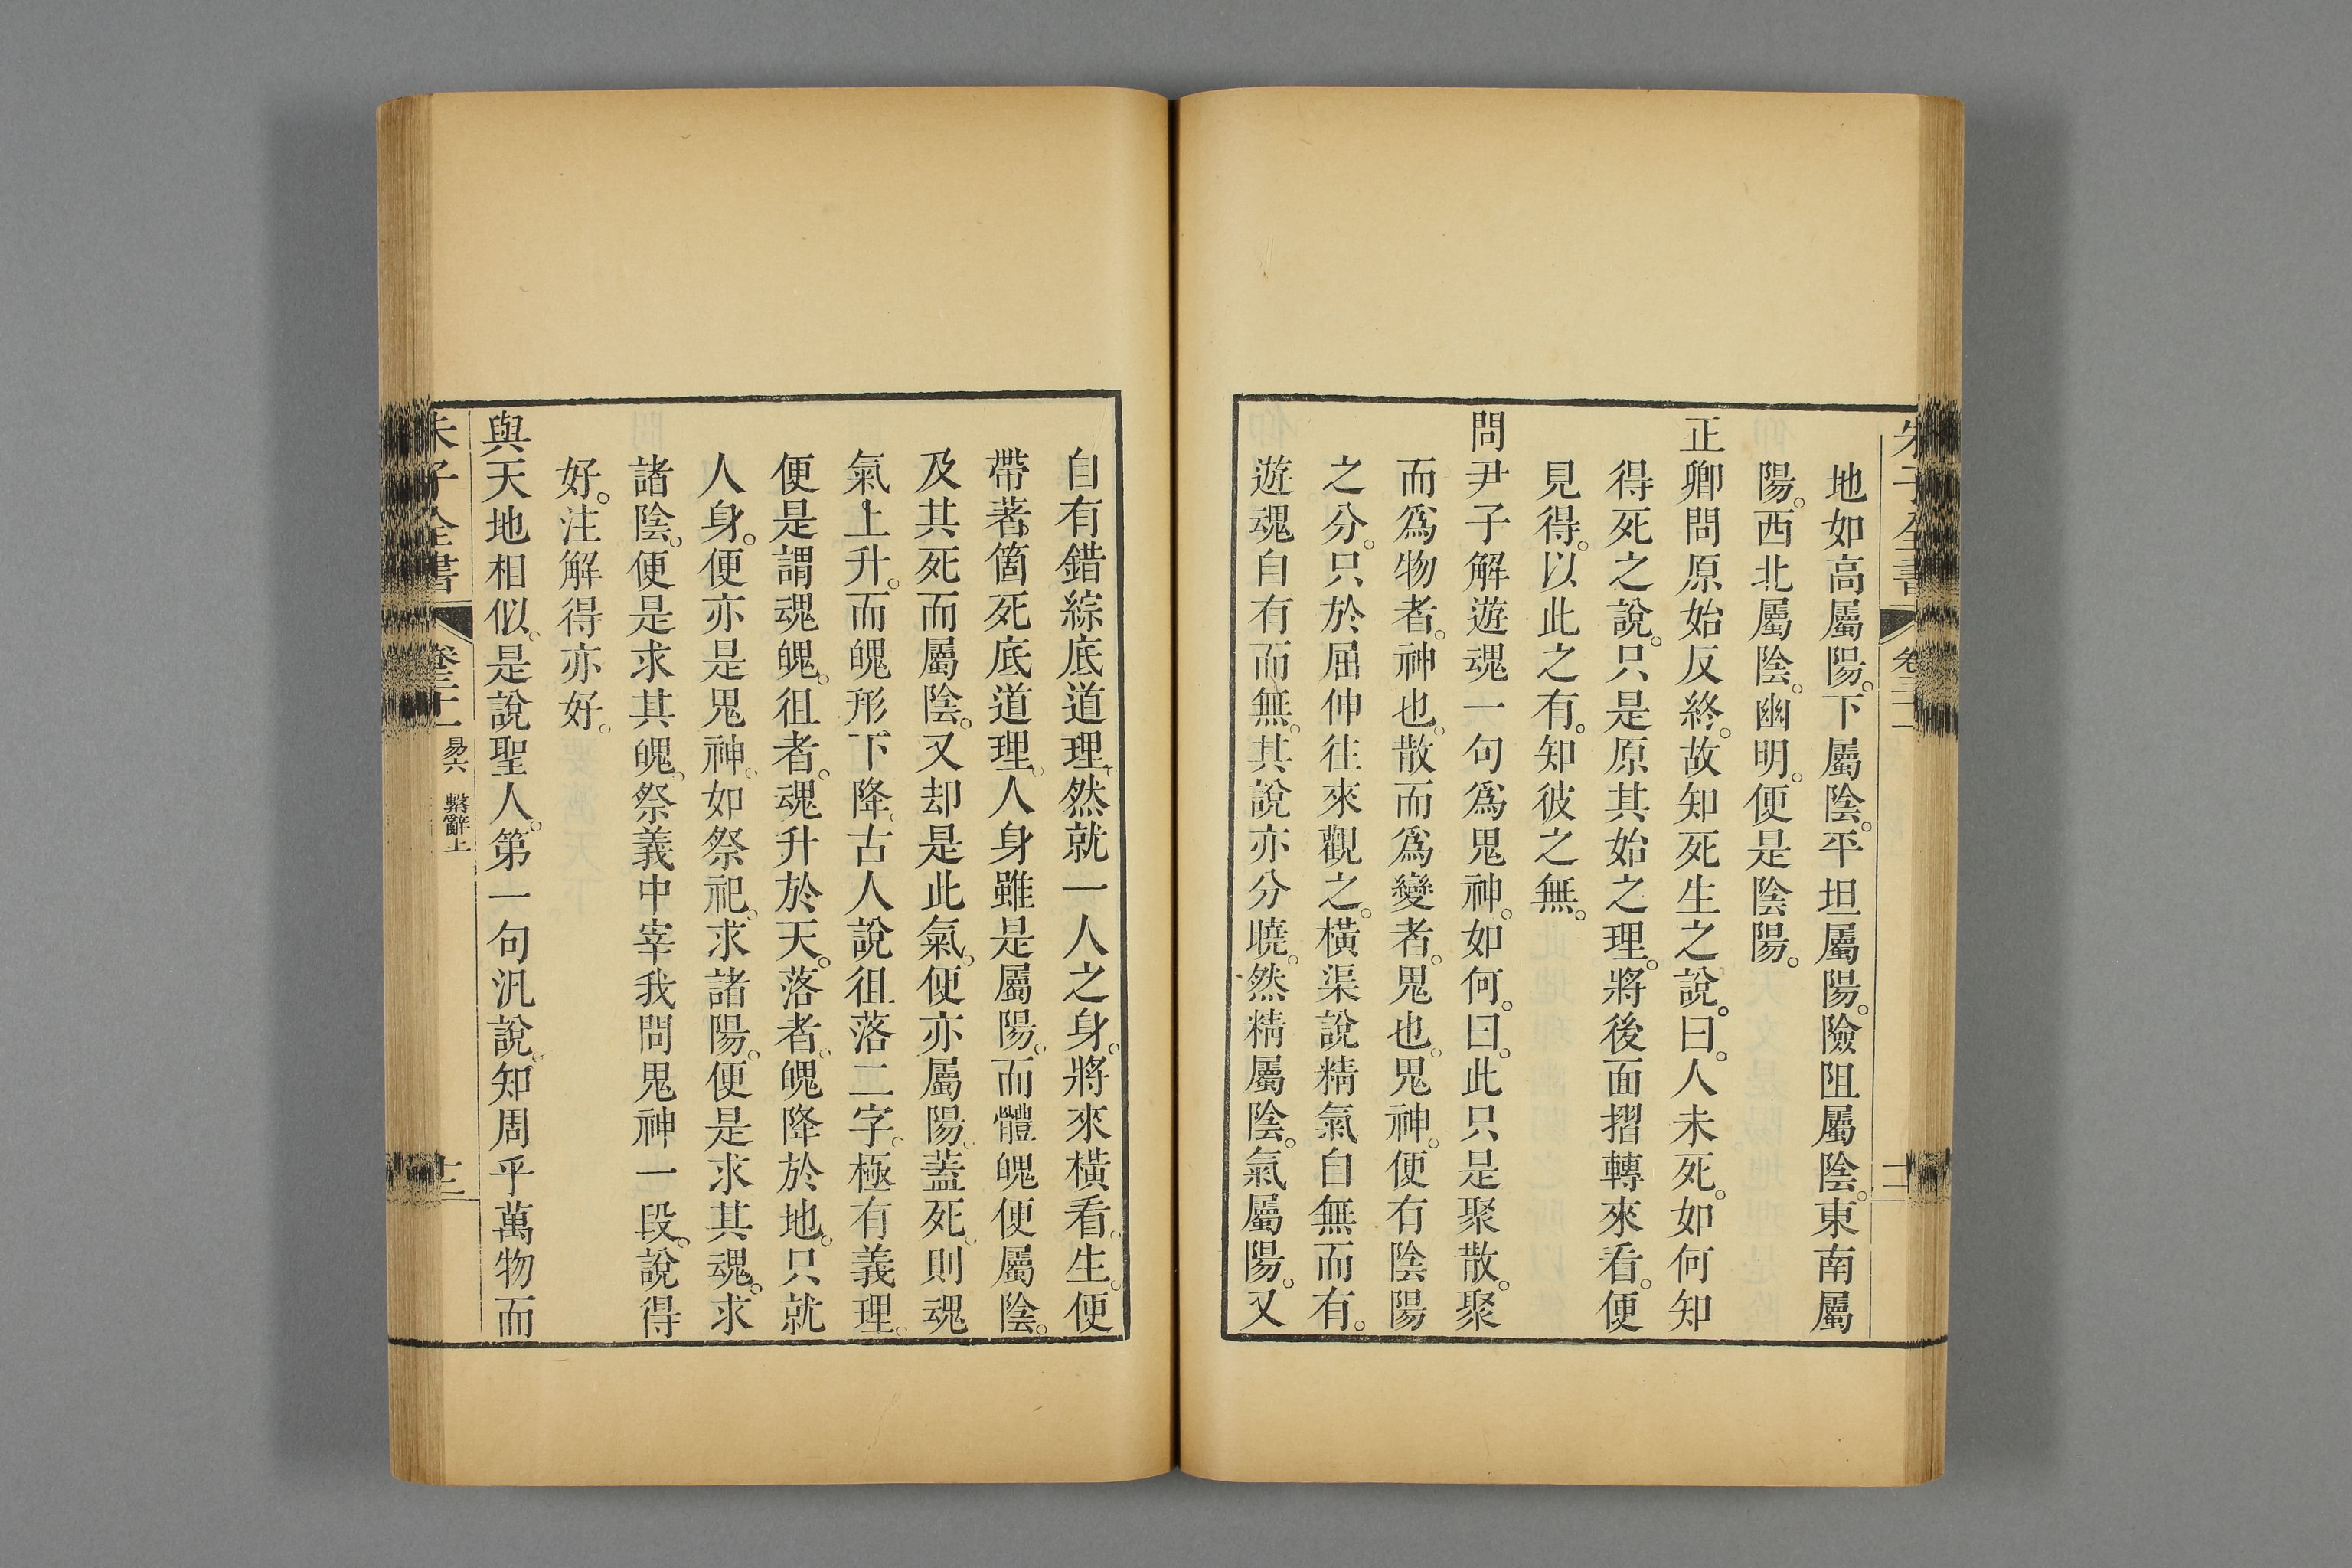 地如高屬陽。下屬陰。平坦屬陽。險阻屬陰。東南屬
陽。西北屬陰。幽明。便是陰陽。
正卿問原始反終。故知死生之說。曰。人未死。如何知
得死之說。只是原其始之理。將後面摺轉來看。便
見得。以此之有。知彼之無。
問尹子解遊魂一句爲鬼神。如何。曰。此只是聚散。聚
而爲物者。神也。散而爲變者。鬼也。鬼神。便有陰陽
之分。只於屈伸往來觀之。橫渠說精氣自無而有。
遊魂自有而無。其說亦分曉。然精屬陰。氣屬陽。又
自有錯綜底道理。然就一人之身。將來橫看。生。便
帶著箇死底道理。人身雖是屬陽。而體魄便屬陰。
及其死而屬陰。又却是此氣。便亦屬陽。蓋死。則魂
氣上升。而魄形下降。古人說徂落二字。極有義理。
便是謂魂魄。徂者。魂升於天。落者。魄降於地。只就
人身。便亦是鬼神。如祭祀。求諸陽。便是求其魂。求
諸陰。便是求其魄。祭義中宰我問鬼神一段。說得
好。注解得亦好。
與天地相似。是說聖人。第一句汎說。知周乎萬物而
朱子全書
易六 繫辭上